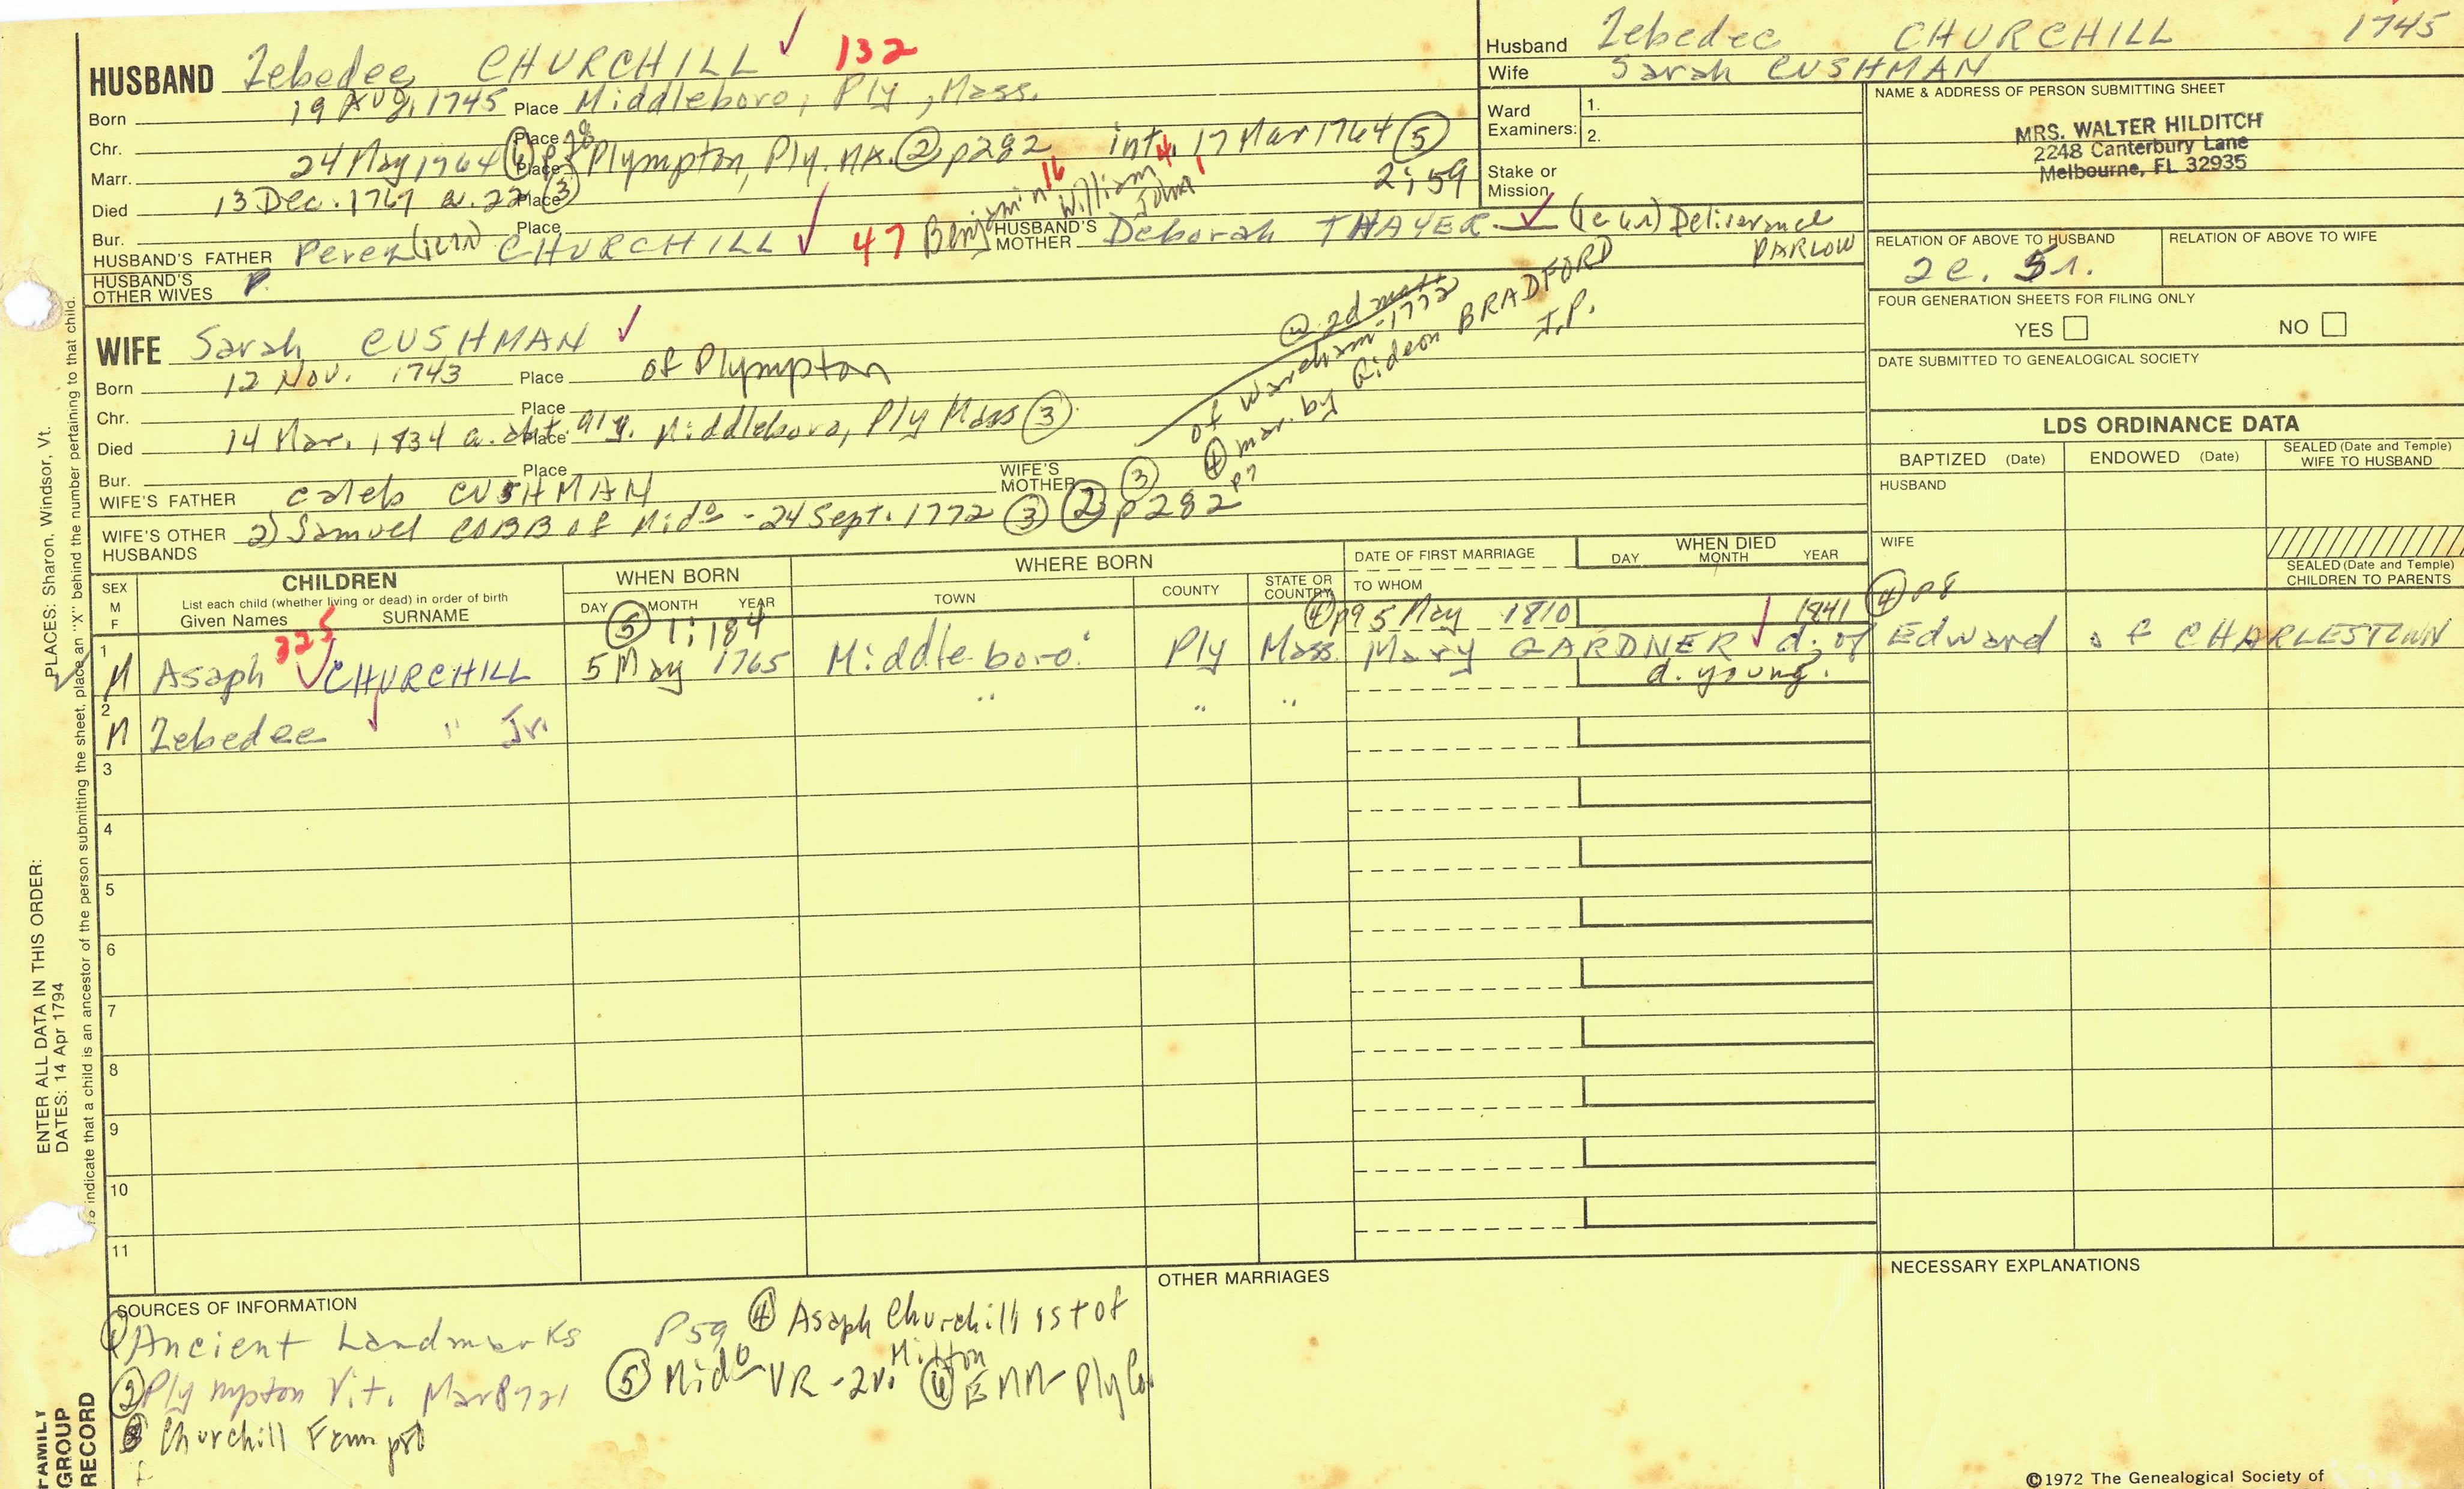 HUSBAND Zebedee CHURCHILL ✓ 132
Born 19 Aug. 1745 Place Middleboro, Ply, Mass.
Chr. Place
Marr. 24 May 1764 ⑥ Place Plympton, Ply. MA. ② p282 int. 17 Mar 1764 ⑤
2;59
Died 13 Dec. 1767 a. 22 ③ Place
Bur. Place
Benjamin 16 William 4 John 1
HUSBAND'S FATHER Perez CHURCHILL ✓ 47 HUSBAND'S MOTHER Deborah THAYER ✓ Deliverance
DARLOW
HUSBAND'S OTHER WIVES
WIFE Sarah CUSHMAN ✓
Born 12 Nov. 1743 Place of Plympton
Chr. Place
Died 14 Mar. 1834 a. abt. 91 y. Place Middleboro, Ply Mass ③
Bur. Place
WIFE'S FATHER Caleb CUSHMAN WIFE'S MOTHER
WIFE'S OTHER HUSBANDS 2) Samuel COBB of Mido - 24 Sept. 1772 ③ ② p282
③
of Wareham - 1772
④ mar. by Gideon BRADFORD
J.P.
p7
Husband Zebedee CHURCHILL 1745
Wife Sarah CUSHMAN
Ward Examiners: 1.
2.
Stake or Mission
NAME & ADDRESS OF PERSON SUBMITTING SHEET
MRS. WALTER HILDITCH
2248 Canterbury Lane
Melbourne, FL 32935
RELATION OF ABOVE TO HUSBAND RELATION OF ABOVE TO WIFE
2c. 5r.
FOUR GENERATION SHEETS FOR FILING ONLY
YES NO
DATE SUBMITTED TO GENEALOGICAL SOCIETY
LDS ORDINANCE DATA
BAPTIZED (Date) ENDOWED (Date) SEALED (Date and Temple) WIFE TO HUSBAND
HUSBAND
WIFE
SEALED (Date and Temple) CHILDREN TO PARENTS
SEX M F
CHILDREN
List each child (whether living or dead) in order of birth
Given Names SURNAME
WHEN BORN
DAY MONTH YEAR
WHERE BORN
TOWN COUNTY STATE OR COUNTRY
DATE OF FIRST MARRIAGE
TO WHOM
WHEN DIED
DAY MONTH YEAR
225 ⑤ 1;184 ④ p9 5 May 1810 1841 ④ p8
1 M Asaph ✓ CHURCHILL 5 May 1765 Middleboro Ply Mass. Mary GARDNER ✓ d. of Edward of CHARLESTOWN
d. young.
2 M Zebedee " Jr. " " "
3
4
5
6
7
8
9
10
11
SOURCES OF INFORMATION
① Ancient Landmarks P59 ④ Asaph Churchill 1st of
Milton
② Plympton Vit. ⑤ Mido VR - 2v. ⑥ EMM Ply Co.
③ Churchill Fam
OTHER MARRIAGES
NECESSARY EXPLANATIONS
©1972 The Genealogical Society of
ENTER ALL DATA IN THIS ORDER:
DATES: 14 Apr 1794
PLACES: Sharon, Windsor, Vt.
To indicate that a child is an ancestor of the person submitting the sheet, place an "X" behind the number pertaining to that child.
FAMILY
GROUP
RECORD